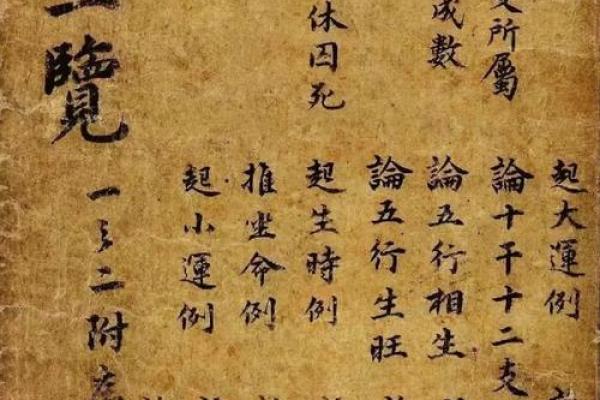 起大運例
所屬
論十干十二支
成數
論五行相生
論五行生旺
休囚死
起生時例
推坐命例
起小運例
覽
一之二附